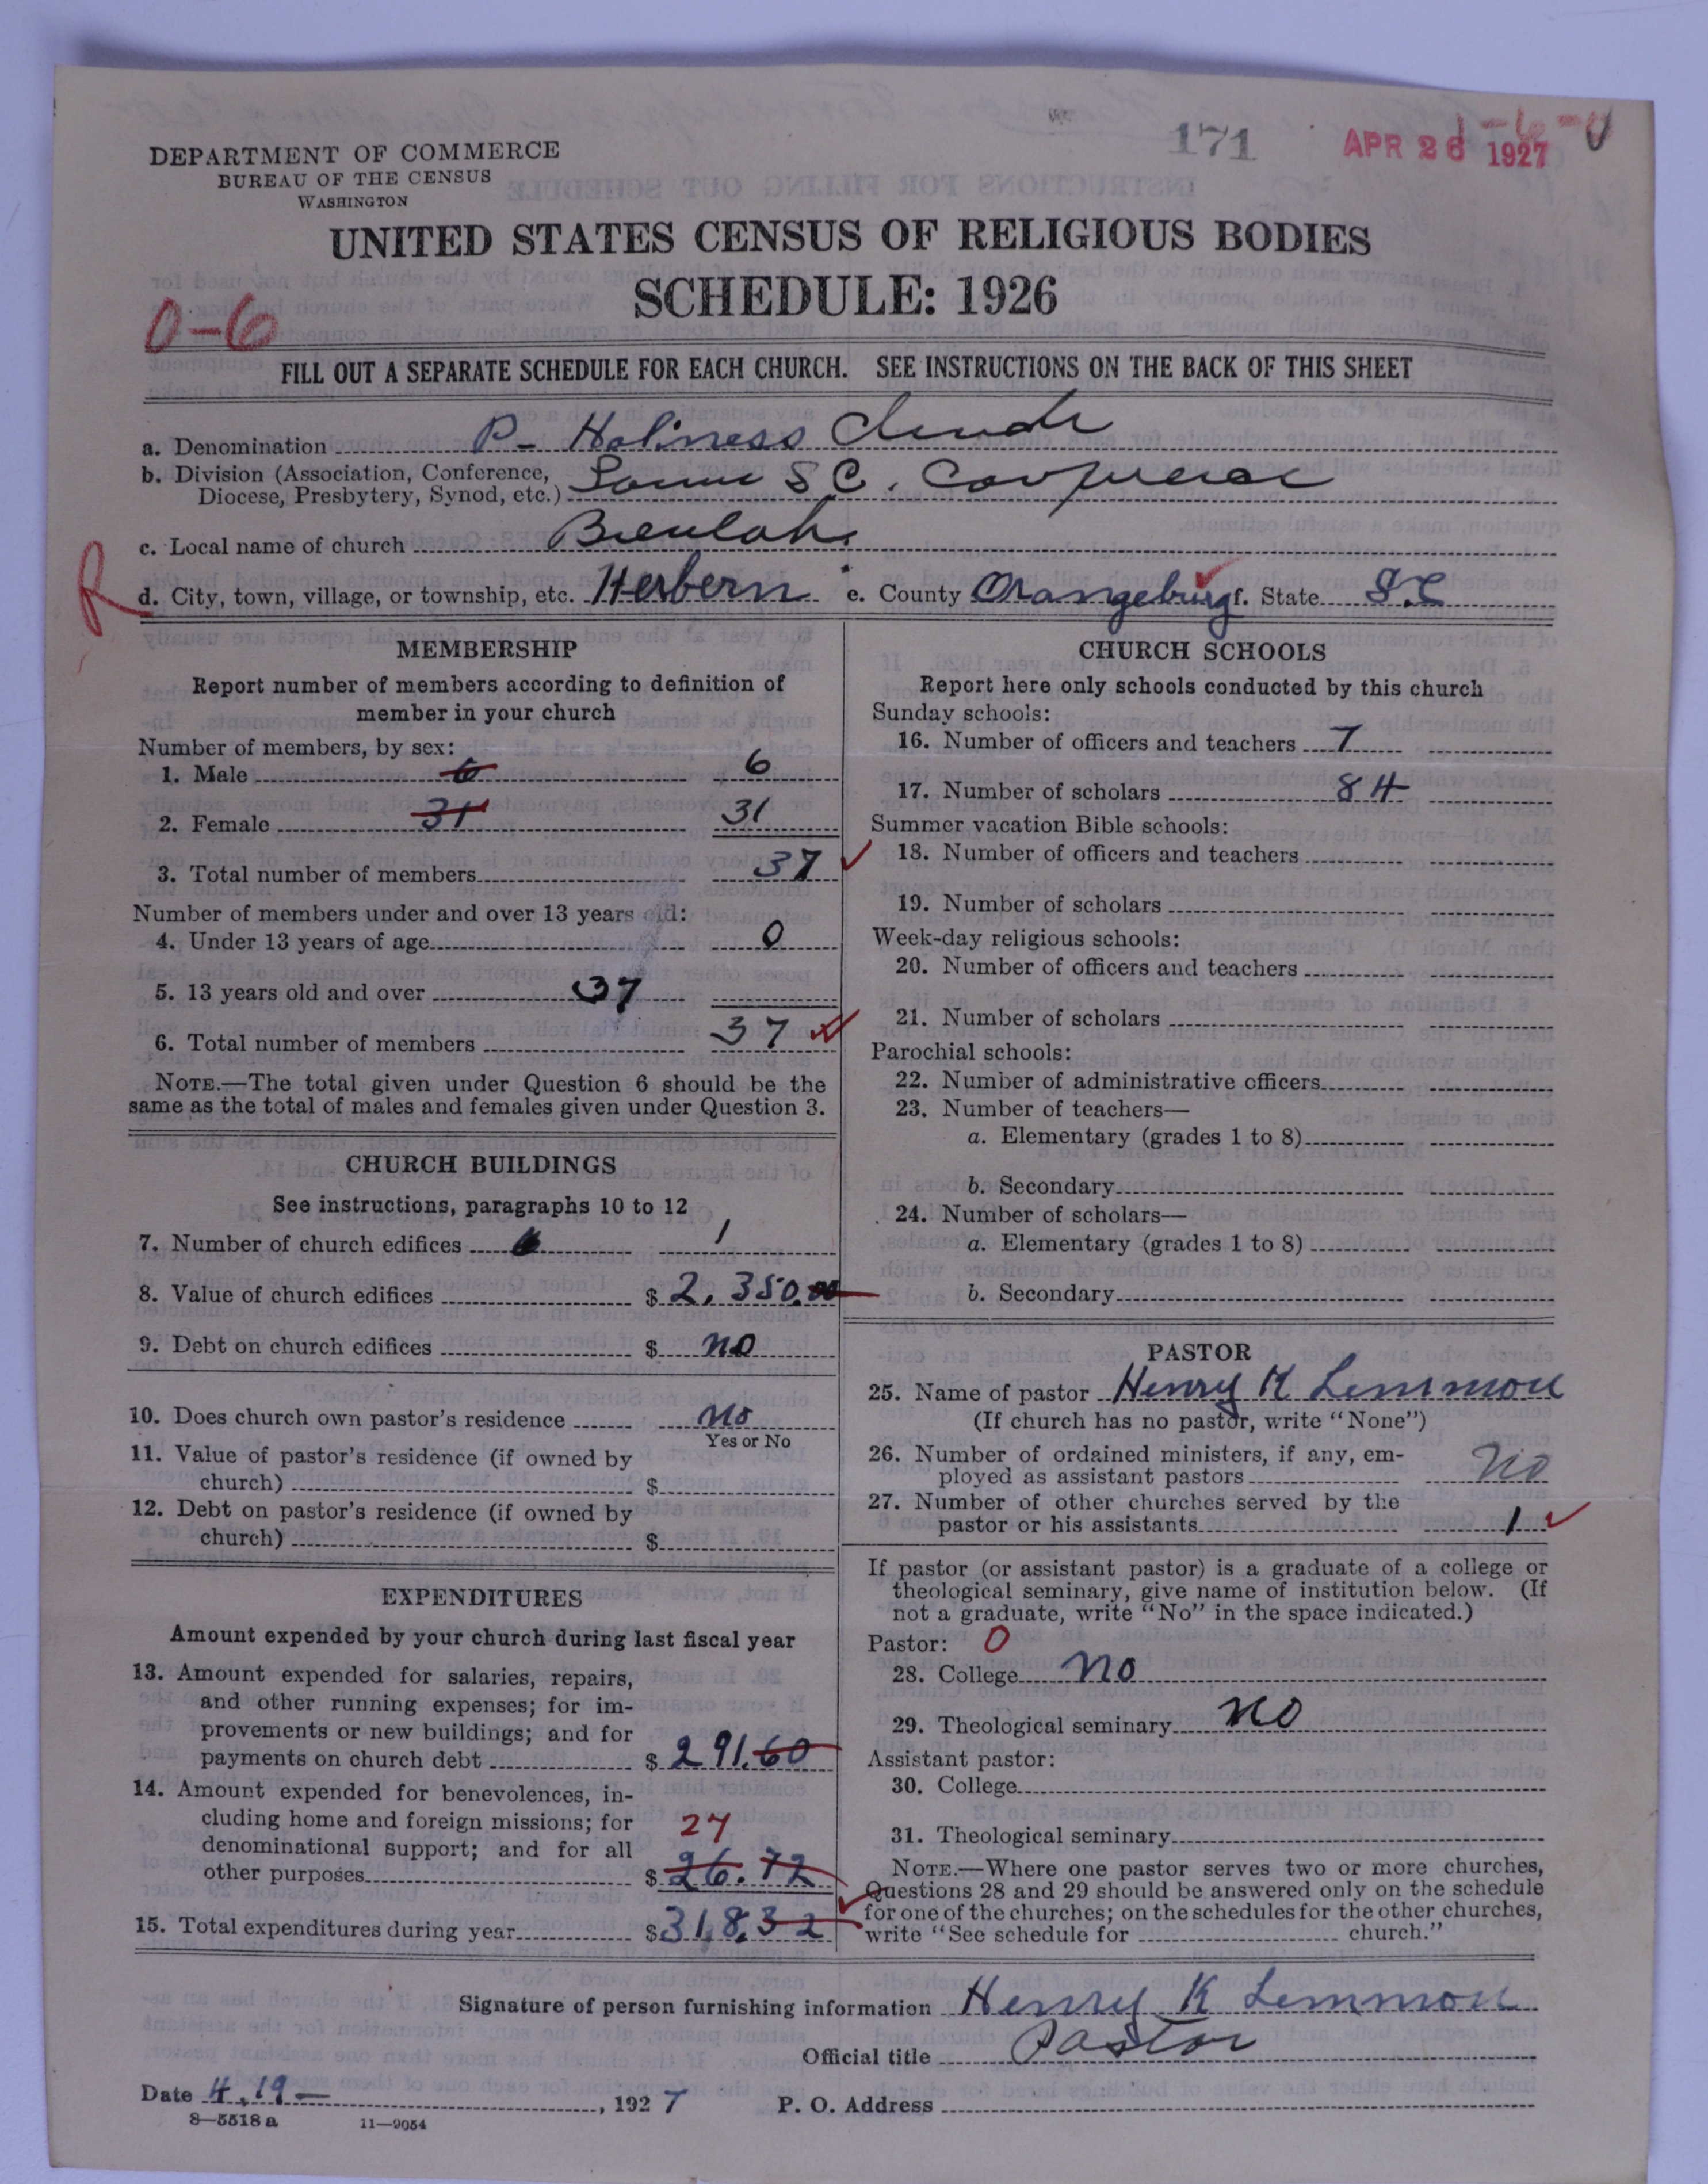 171
APR 26 1927
1-6-0
DEPARTMENT OF COMMERCE
BUREAU OF THE CENSUS
WASHINGTON
UNITED STATES CENSUS OF RELIGIOUS BODIES
SCHEDULE: 1926
0-6
FILL OUT A SEPARATE SCHEDULE FOR EACH CHURCH. SEE INSTRUCTIONS ON THE BACK OF THIS SHEET
a. Denomination P- Holiness Church
b. Division (Association, Conference,
Diocese, Presbytery, Synod, etc.) S C.
c. Local name of church Beulah
R
d. City, town, village, or township, etc. Herbern e. County Orangeburg f. State S.C
MEMBERSHIP
Report number of members according to definition of
member in your church
Number of members, by sex:
1. Male 6 6
2. Female 31 31
3. Total number of members 37
Number of members under and over 13 years old:
4. Under 13 years of age 0
5. 13 years old and over 37
6. Total number of members 37
NOTE.—The total given under Question 6 should be the
same as the total of males and females given under Question 3.
CHURCH BUILDINGS
See instructions, paragraphs 10 to 12
7. Number of church edifices 1
8. Value of church edifices $ 2,350.00
9. Debt on church edifices $ no
10. Does church own pastor's residence no
Yes or No
11. Value of pastor's residence (if owned by
church) $
12. Debt on pastor's residence (if owned by
church) $
EXPENDITURES
Amount expended by your church during last fiscal year
13. Amount expended for salaries, repairs,
and other running expenses; for im-
provements or new buildings; and for
payments on church debt $ 291.60
14. Amount expended for benevolences, in-
cluding home and foreign missions; for
27
denominational support; and for all
other purposes $ 26.72
15. Total expenditures during year $ 318.32
CHURCH SCHOOLS
Report here only schools conducted by this church
Sunday schools:
16. Number of officers and teachers 7
17. Number of scholars 84
Summer vacation Bible schools:
18. Number of officers and teachers
19. Number of scholars
Week-day religious schools:
20. Number of officers and teachers
21. Number of scholars
Parochial schools:
22. Number of administrative officers
23. Number of teachers—
a. Elementary (grades 1 to 8)
b. Secondary
24. Number of scholars—
a. Elementary (grades 1 to 8)
b. Secondary
PASTOR
25. Name of pastor Henry K Lemmon
(If church has no pastor, write "None")
26. Number of ordained ministers, if any, em-
ployed as assistant pastors No
27. Number of other churches served by the
pastor or his assistants 1
If pastor (or assistant pastor) is a graduate of a college or
theological seminary, give name of institution below. (If
not a graduate, write "No" in the space indicated.)
Pastor: 0
28. College no
29. Theological seminary no
Assistant pastor:
30. College
31. Theological seminary
NOTE.—Where one pastor serves two or more churches,
Questions 28 and 29 should be answered only on the schedule
for one of the churches; on the schedules for the other churches,
write "See schedule for church."
Signature of person furnishing information Henry K Lemmon
Official title Pastor
Date 4.19—, 1927 P. O. Address
8—5518a 11—9054